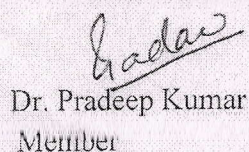 Yadav
Dr. Pradeep Kumar
Member